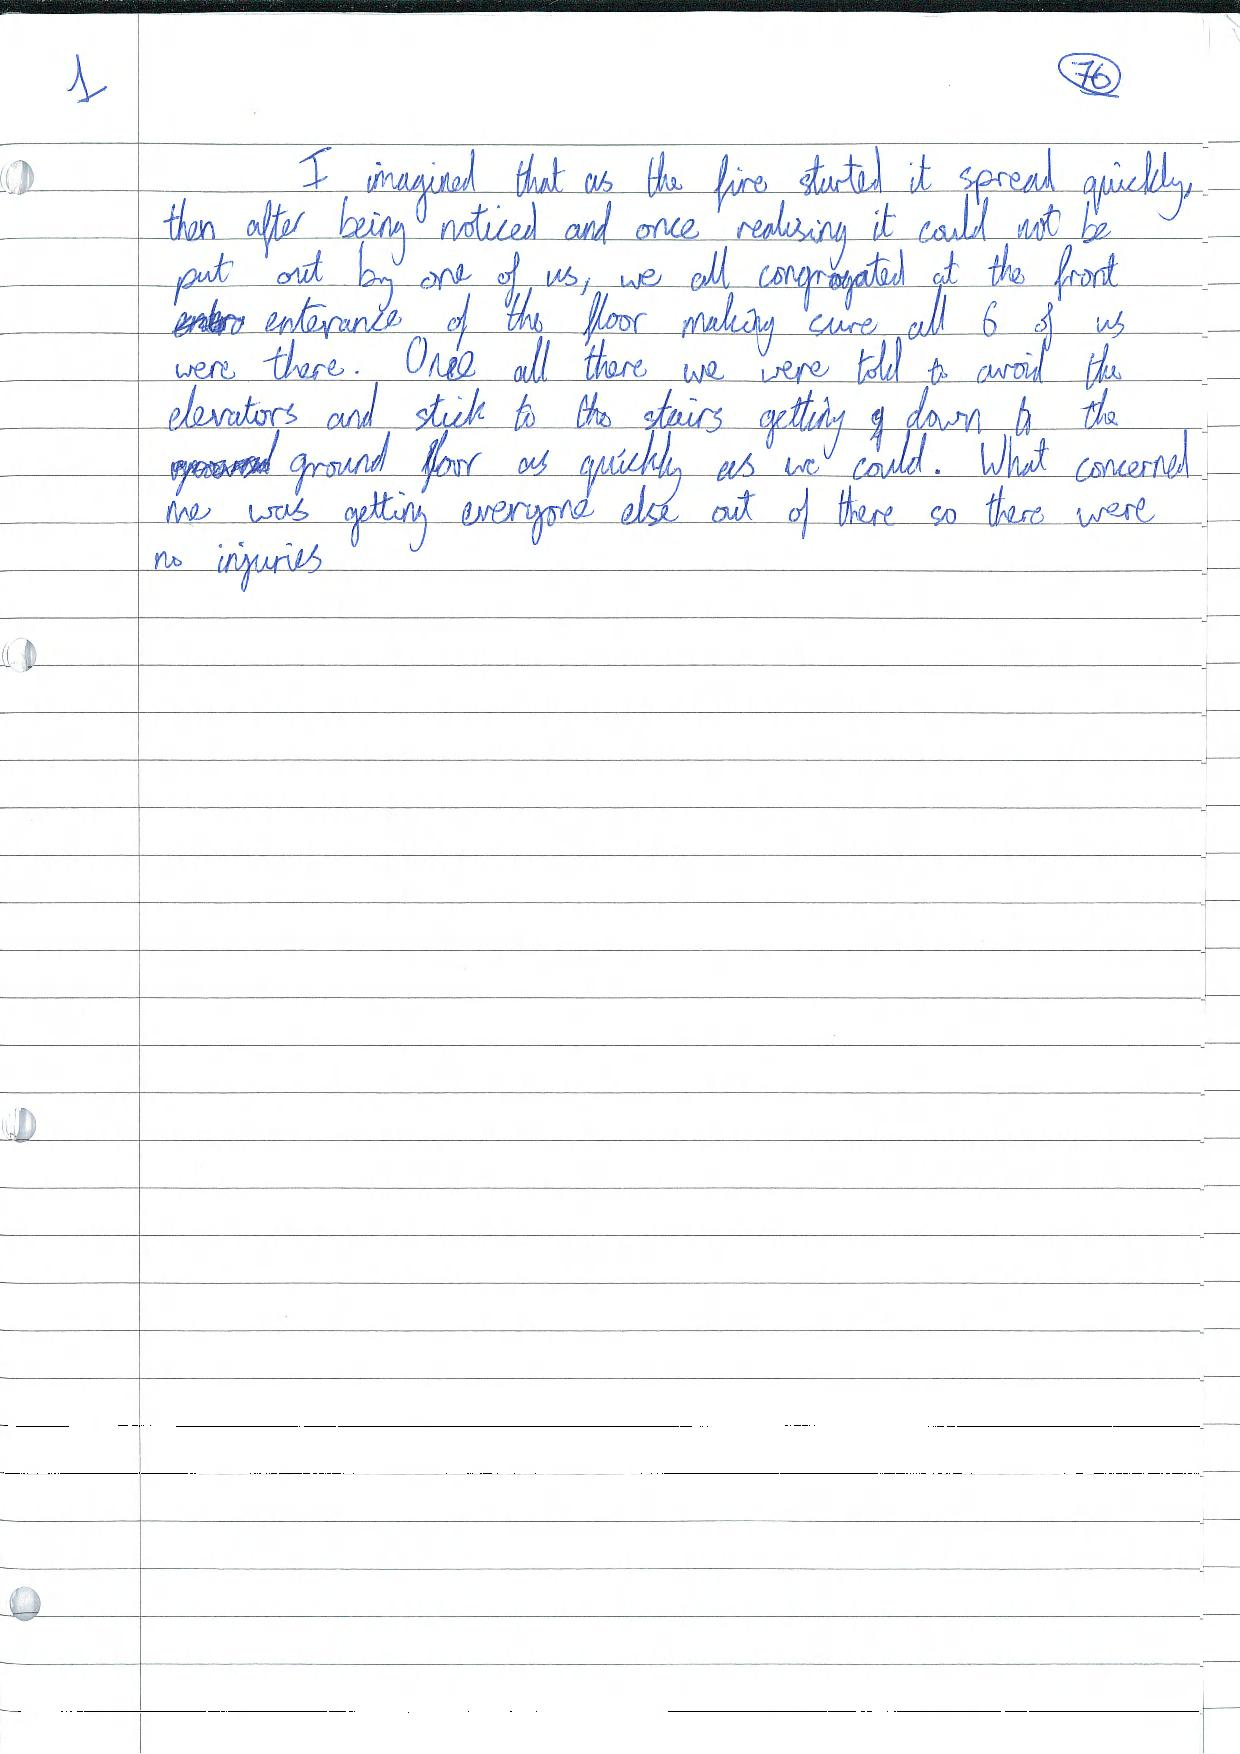 1
76
I imagined that as the fire started it spread quickly,
then after being noticed and once realising it could not be
put out by one of us, we all congregated at the front
enterance of the floor making sure all 6 of us
were there. Once all there we were told to avoid the
elevators and stick to the stairs getting down to the
ground floor as quickly as we could. What concerned
me was getting everyone else out of there so there were
no injuries